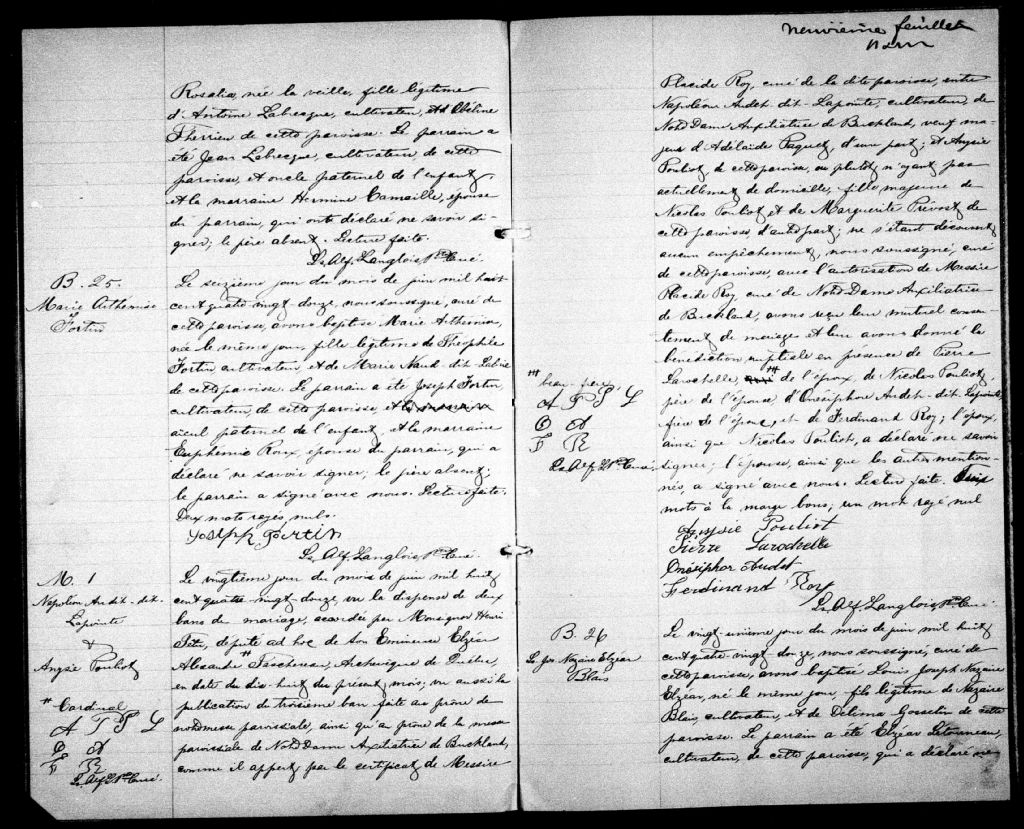 Rosalia, née la veille, fille légitime
d'Antoine Labrecque, cultivateur, et d'Obéline
Therrien de cette paroisse. Le parrain a
été Jean Labrecque, cultivateur, de cette
paroisse, et oncle paternel de l'enfant,
et la marraine Hermine Camaille, épouse
du parrain, qui ont déclaré ne savoir si-
gner, le père absent. Lecture faite.
Ls. Alf. Langlois Ptre Curé.
B. 25.
Marie Arthemise
Fortin
Le seizième jour du mois de juin mil huit
cent quatre vingt douze, nous soussigné, curé de
cette paroisse, avons baptisé Marie Arthemise,
née le même jour, fille légitime de Théophile
Fortin cultivateur, et de Marie Naud dit Labrie
de cette paroisse. Le parrain a été Joseph Fortin,
cultivateur, de cette paroisse, et
aïeul paternel de l'enfant, et la marraine
Euphémie Roux, épouse du parrain, qui a
déclaré ne savoir signer, le père absent;
le parrain a signé avec nous. Lecture faite.
Deux mots rayés, nuls.
Joseph Fortin
Ls. Alf. Langlois Ptre Curé.
M. 1
Napoléon Audit-dit-
Lapointe
&
Anysie Pouliot
# Cardinal
A P P L
O A
F R
Ls Alf L Ptre Curé.
Le vingtième jour du mois de juin mil huit
cent quatre-vingt-douze, vu la dispense de deux
bans de mariage, accordée par Monsignor Henri
Têtu, député ad hoc de Son Eminence Elzéar
Alexandre # Taschereau, Archevêque de Québec,
en date du dix-huit du présent mois; vu aussi la
publication de troisième ban faite au prône de
notre messe paroissiale, ainsi qu'au prône de la messe
paroissiale de Notre Dame Auxiliatrice de Buckland,
comme il appert par le certificat de Messire
neuvième feuillet
Placide Roy, curé de la dite paroisse, entre
Napoléon Audet-dit-Lapointe, cultivateur, de
Notre Dame Auxiliatrice de Buckland, veuf ma-
jeur d'Adélaïde Paquet, d'une part; et Anysie
Pouliot, de cette paroisse, ou plutôt n'ayant pas
actuellement de domicile, fille majeure de
Nicolas Pouliot et de Marguerite Prévost de
cette paroisse, d'autre part; ne s'étant découvert
aucun empêchement, nous soussigné, curé
de cette paroisse, avec l'autorisation de Messire
Placide Roy, curé de Notre Dame Auxiliatrice
de Buckland, avons reçu leur mutuel consen-
tement de mariage et leur avons donné la
bénédiction nuptiale en présence de Pierre
Larochelle, # de l'époux, de Nicolas Pouliot,
père de l'épouse, d'Onésiphore Audet-dit-Lapointe,
frère de l'époux, et de Ferdinand Roy; l'époux,
ainsi que Nicolas Pouliot, a déclaré ne savoir
signer; l'épouse, ainsi que les autres mention-
nés, a signé avec nous. Lecture faite. Trois
mots à la marge bons, un mot rayé nul
# beau-père,
A P P L
O A
F R
Ls Alf L Ptre Curé.
Anysie Pouliot
Pierre Larochelle
Onésiphor Audet
Ferdinand Roy
Ls. Alf. Langlois Ptre Curé.
B. 26
Ls Jos Nazaire Elzéar
Blais
Le vingt-unième jour du mois de juin mil huit
cent quatre-vingt-douze, nous soussigné, curé de
cette paroisse, avons baptisé Louis Joseph Nazaire
Elzéar, né le même jour, fils légitime de Nazaire
Blais, cultivateur, et de Délima Gosselin de cette
paroisse. Le parrain a été Elzéar Létourneau,
cultivateur, de cette paroisse, qui a déclaré ne